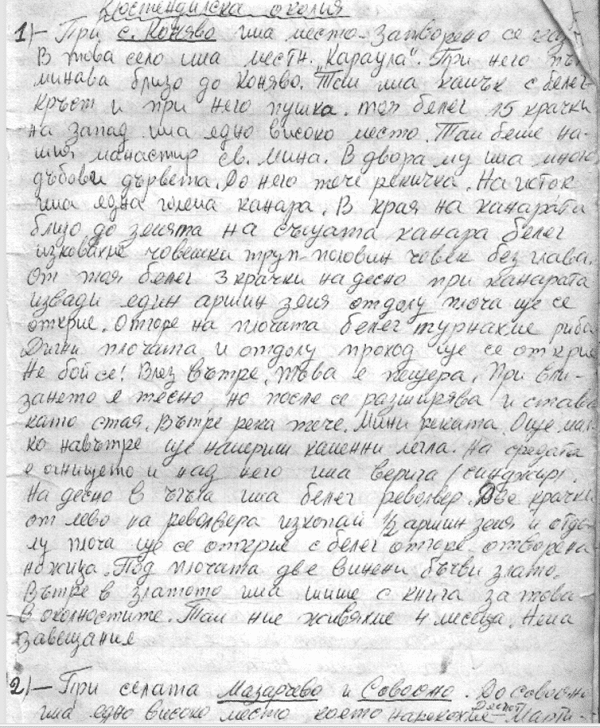 Кюстендилска околия
1)- При с. Коняво има место-Затворено се
В това село има местн. "Караула". При него път
минава близо до Коняво. Там има камък с белег
кръст и при него пушка. тоя белег 15 крачки
на запад има едно високо место. Там беше на-
шия манастир св. Мина. В двора му има много
дъбови дървета. До него тече рекичка. На исток
има една голема канара. В края на канарата
близо до земята на същата канара белег
изковахме човешки труп-половин човек без глава.
От тоя белег 3 крачки на десно при канарата
извади един аршин земя отдолу плоча ще се
открие. Отгоре на плочата белег турнахме риба
Дигни плочата и отдолу проход ще се открие
Не бой се! Влез вътре, това е пещера. При вли-
зането е тесно но после се разширява и става
като стая. Вътре река тече. Мини реката. Още мал-
ко навътре ще намериш каменни легла. На средата
е огнището и над него има верига (синджир).
На десно в ъгъла има белег револвер. Две крачки
от лево на револвера изкопай ½ аршин земя и отдо-
лу плоча ще се открие с белег отгоре отворена
ножица. Под плочата две винени бъчви злато.
Вътре в златото има шише с книга за това
в околностите. Там ние живяхме 4 месеца. Нема
завещания
2)- При селата Мазарачево и Совооно. До Совооно
има едно високо место което нарекохме Десет